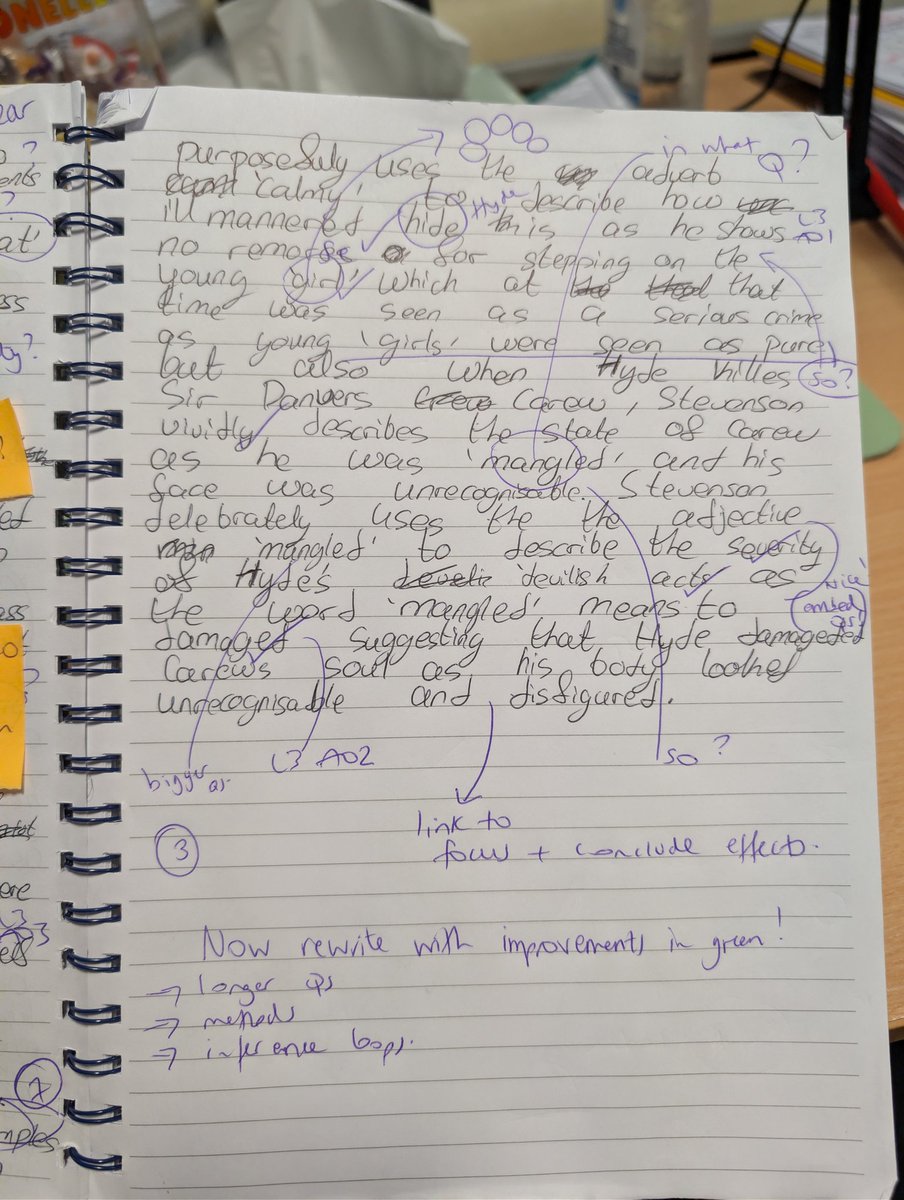 in what
Q?
purposefuly uses the advert
'calmy' to describe how
Hyde
ill mannered hide this is as he shows
L3
AO1
no remorse for stepping on the
young 'girl' which at that
time was seen as a serious crime
as young 'girls' were seen as pure,
but also when Hyde killes
so?
Sir Danvers Carew, Stevenson
vividly describes the state of Carew
as he was 'mangled' and his
face was unrecognisable. Stevenson
delebrately uses the the adjective
'mangled' to describe the severity
of Hyde's devilish acts as
nice
embed
qs
the word 'mangled' means to
damaged suggesting that Hyde damageded
Carew's soul as his body looked
unrecognisable and disfigured.
bigger qs
L3 AO2
so?
link to
focus + conclude effects.
3
Now rewrite with improvements in green!
→ longer Qs
→ methods
→ inference loops.
ear
ents
at'
ss
ty?
ass
ere
L3
7
mples